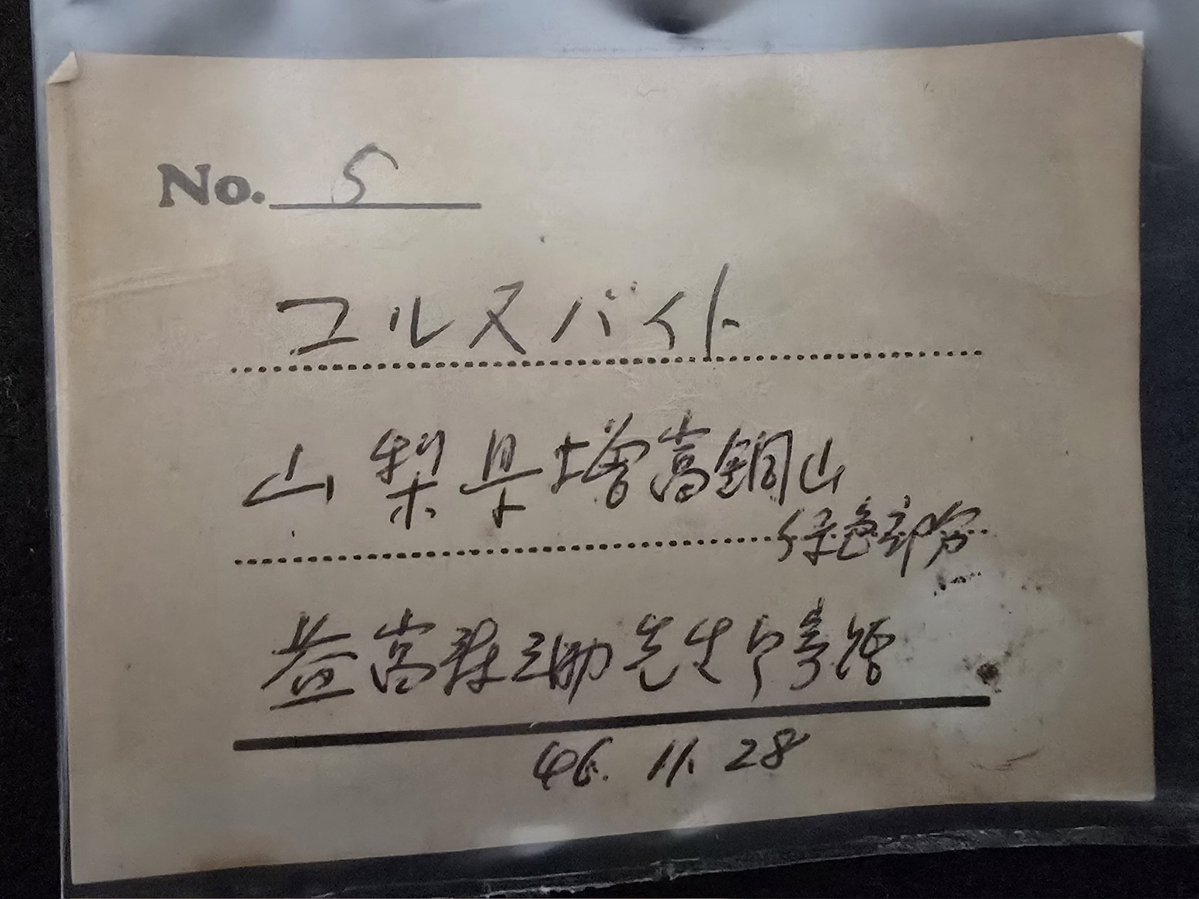 No. 5
コルヌバイト
山梨県増富銅山
緑色部分
益富壽之助先生ヨリ寄贈
46. 11. 28